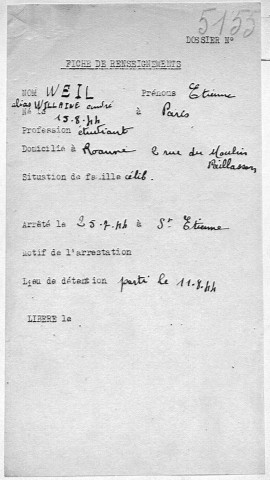 5155
DOSSIER N°
FICHE DE RENSEIGNEMENTS
NOM WEIL Prénoms Etienne
alias VILLAINE André
Né le 15.8.44 à Paris
Profession étudiant
Domicilié à Roanne 2 rue du Moulin
Paillasson
Situation de famille célib.
Arrêté le 25.7.44 à St Etienne
Motif de l'arrestation
Lieu de détention parti le 11.8.44
LIBERE le